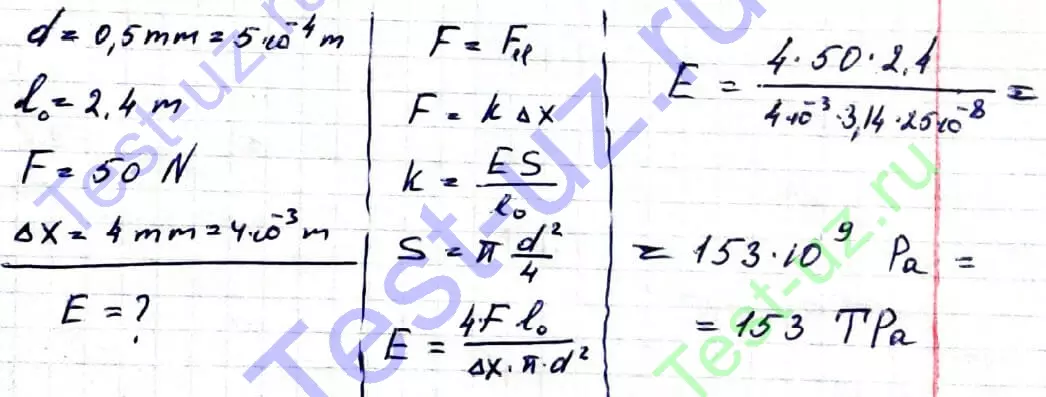 d = 0,5 mm = 5·10⁻⁴ m
l₀ = 2,4 m
F = 50 N
Δx = 4 mm = 4·10⁻³ m
E = ?
F = Fₑₗ
F = k Δx
k = ES / l₀
S = π d² / 4
E = 4·F l₀ / Δx · π · d²
E = 4·50·2,4 / 4·10⁻³·3,14·25·10⁻⁸ =
= 153·10⁹ Pa =
= 153 TPa
Test-uz.ru
Test-uz.ru
Test-uz.ru